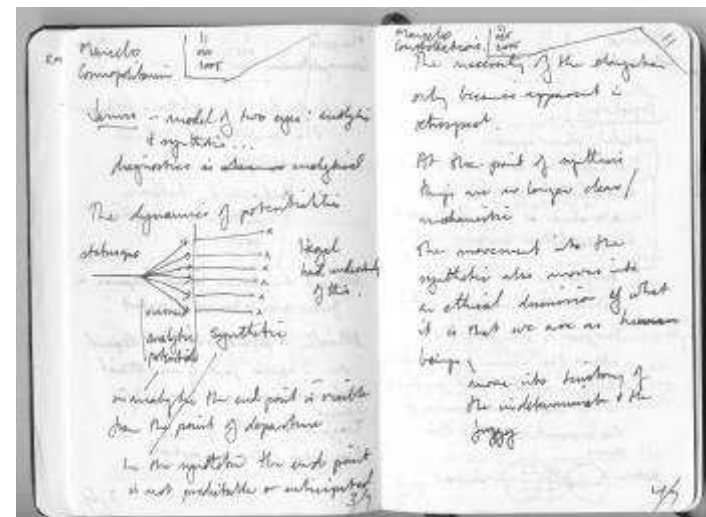 Marcelo
model of two eyes: analytic
& synthetic ...
diagnostics is analytical
The dynamics of potentialities
status quo
Hegel
had understood
of this.
analytic
potential
synthetic
in analytic the end point is visible
from the point of departure
In the synthetic the end point
is not predictable or anticipated
3/5
Marcelo
11
The necessity of the
only becomes apparent in
retrospect.
At the point of synthesis
things are no longer clear/
The movement into the
synthetic also moves into
an ethical dimension of what
it is that we are as human
beings,
move into territory of
the indeterminate & the
fuzzy
4/5